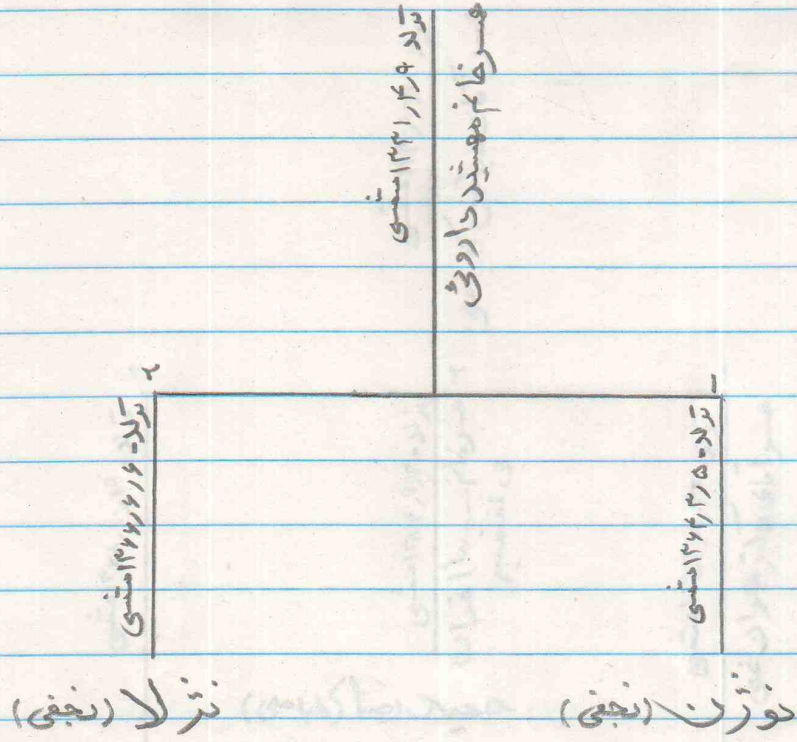 همسر خانم مهشید داروئی
تولد ۱۳۳۱٫۴٫۹ شمسی
۱
تولد- ۱۳۶۴٫۳٫۵ شمسی
نوژن (نجفی)
۲
تولد- ۱۳۶۶٫۶٫۶ شمسی
(نجفی)